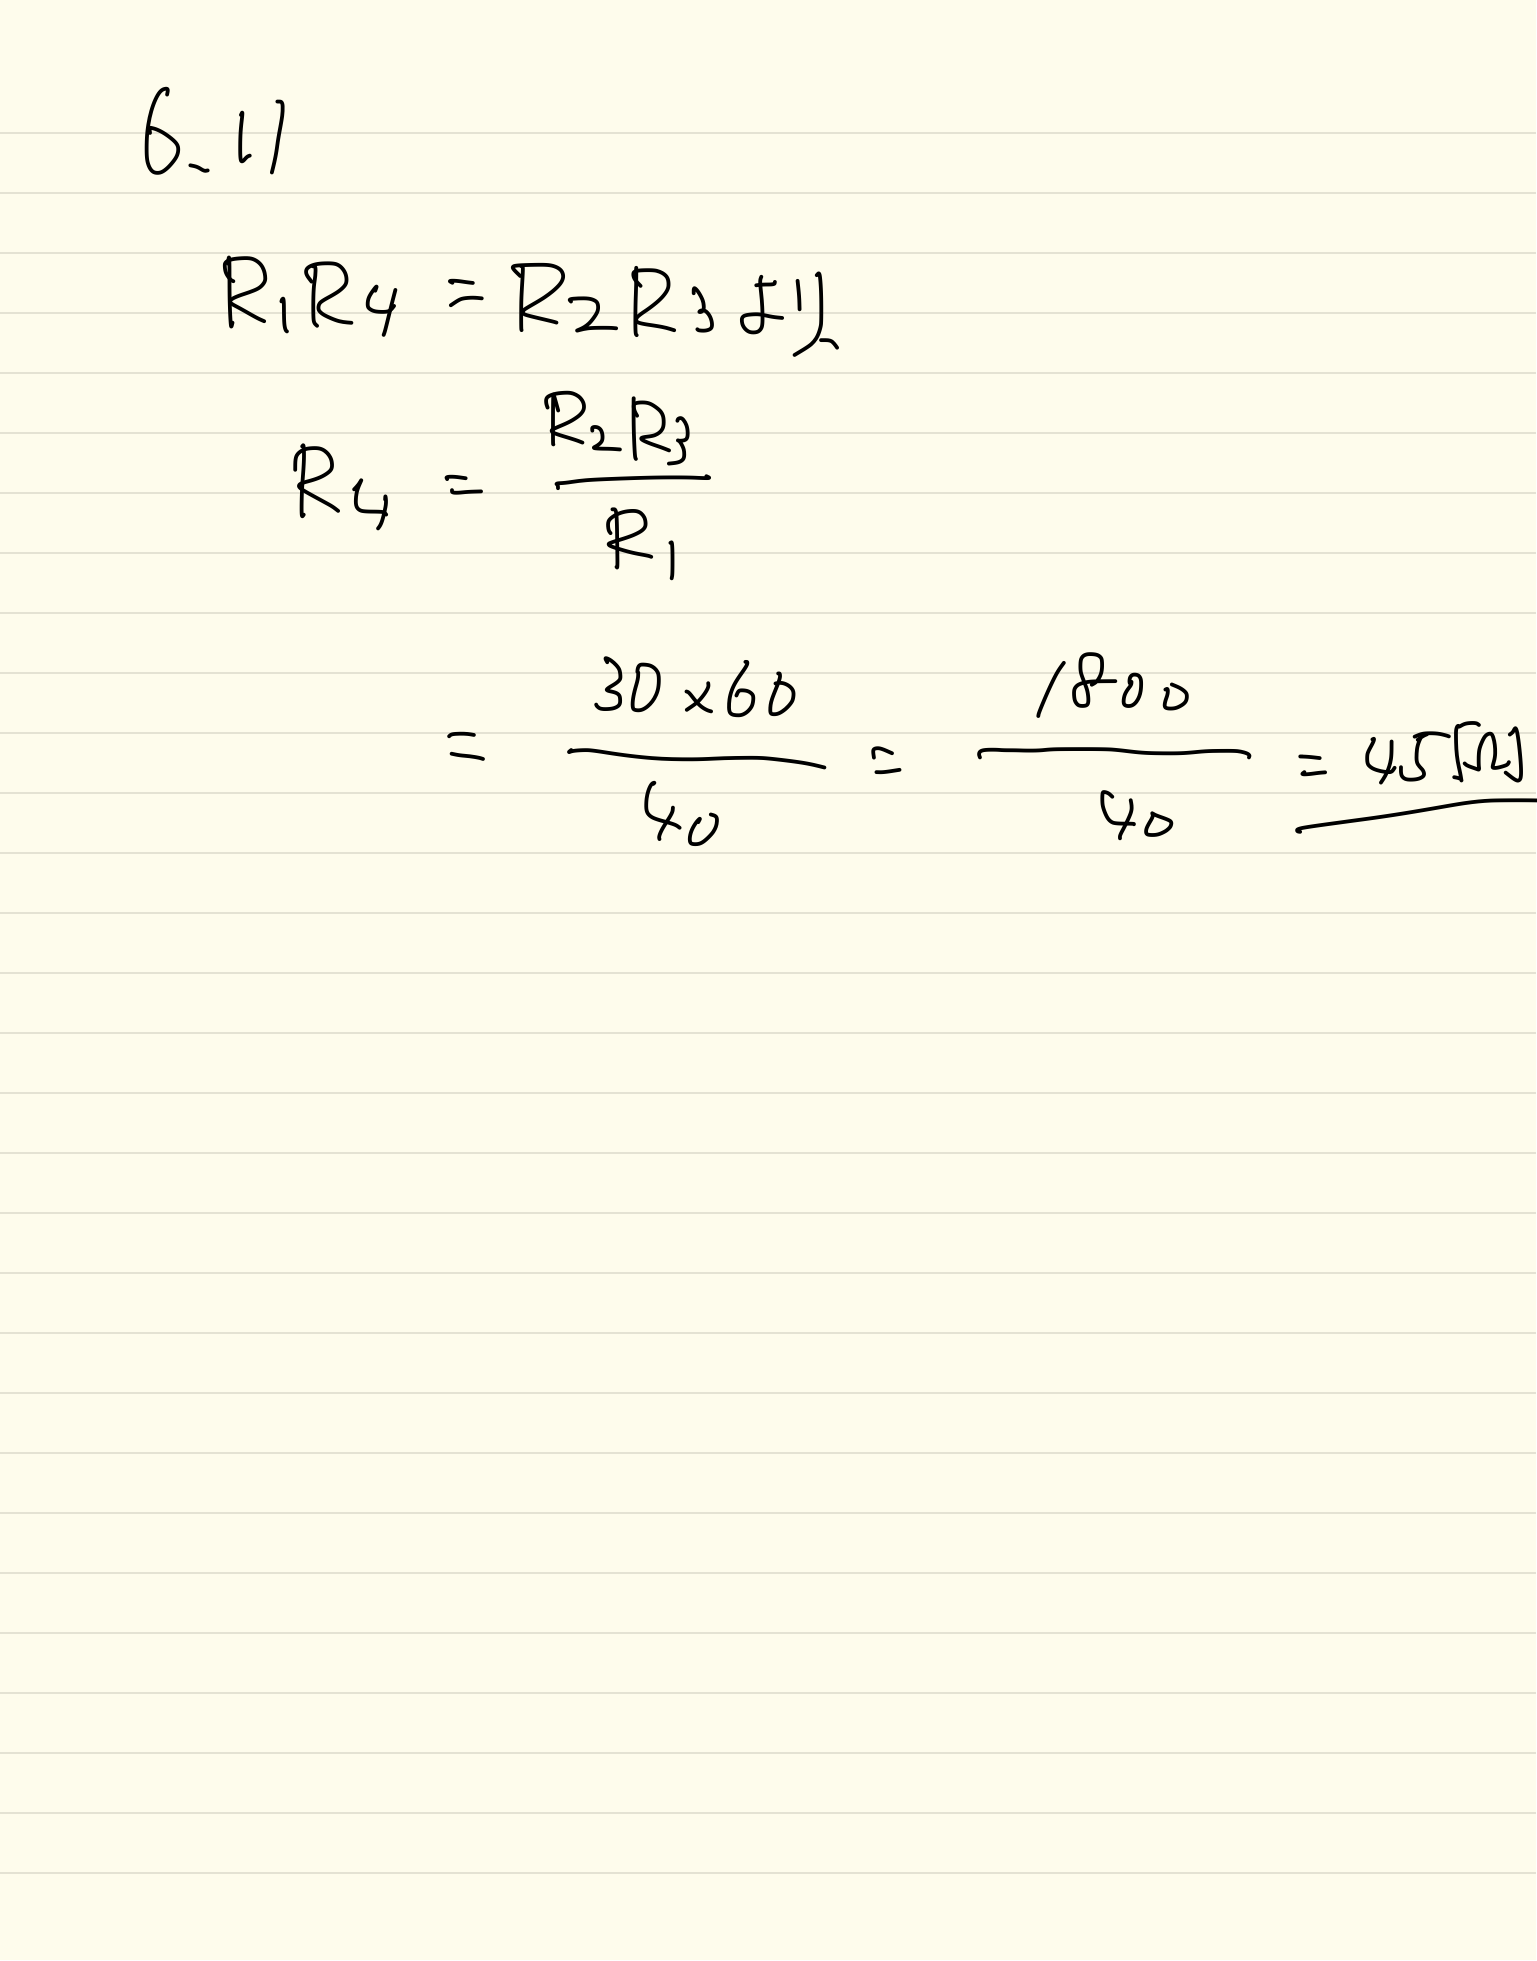 6_11
R₁R₄ = R₂R₃より、
R₄ = R₂R₃ / R₁
= 30×60 / 40 = 1800 / 40 = 45[Ω]